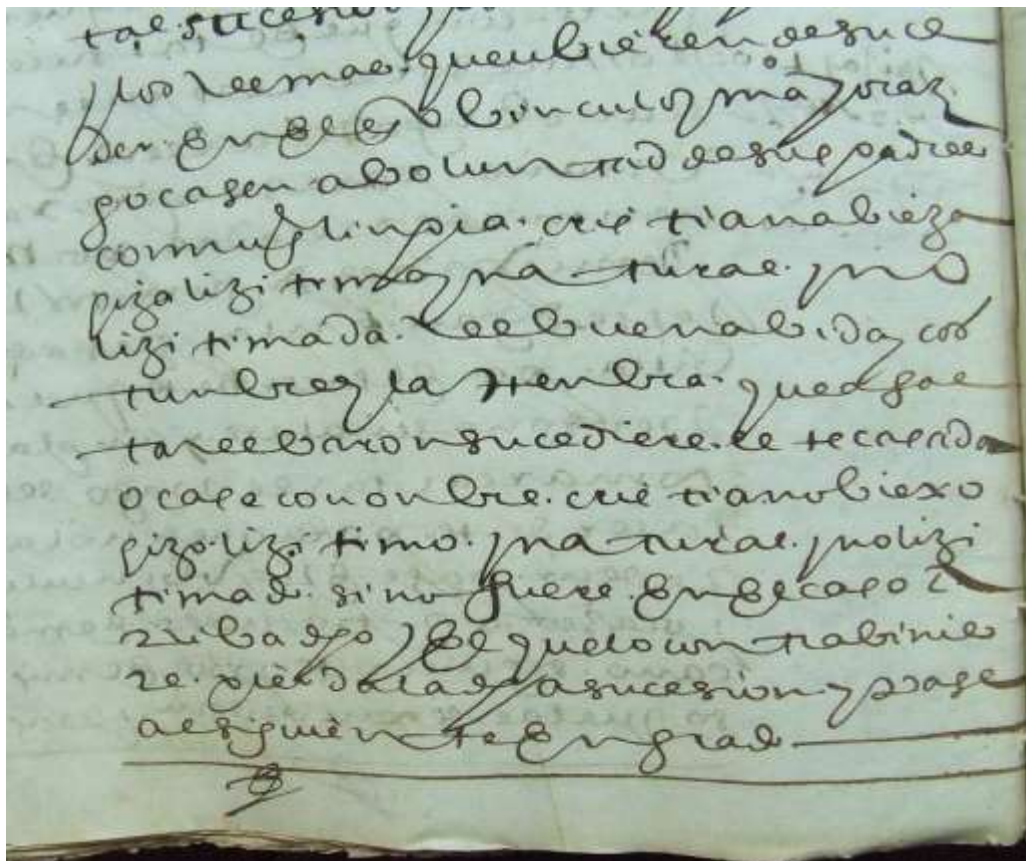 tal sucesion
y los demas que ubieren de suce
der en este binculo y mayoraz
go casen a boluntad de sus padres
con muger linpia cristiana bieza
yiza lizitima y natural y no
lizitimada de buena bida y cos
tunbres y la henbra que a fal
ta de baron sucediere este casada
o case con onbre cristiano biexo
yizo lizitimo y natural y no lizi
timado sino fuere en el caso a
rriba dho y el que lo contrabinie
re pierda la dha sucesion y pase
al siguiente en grado